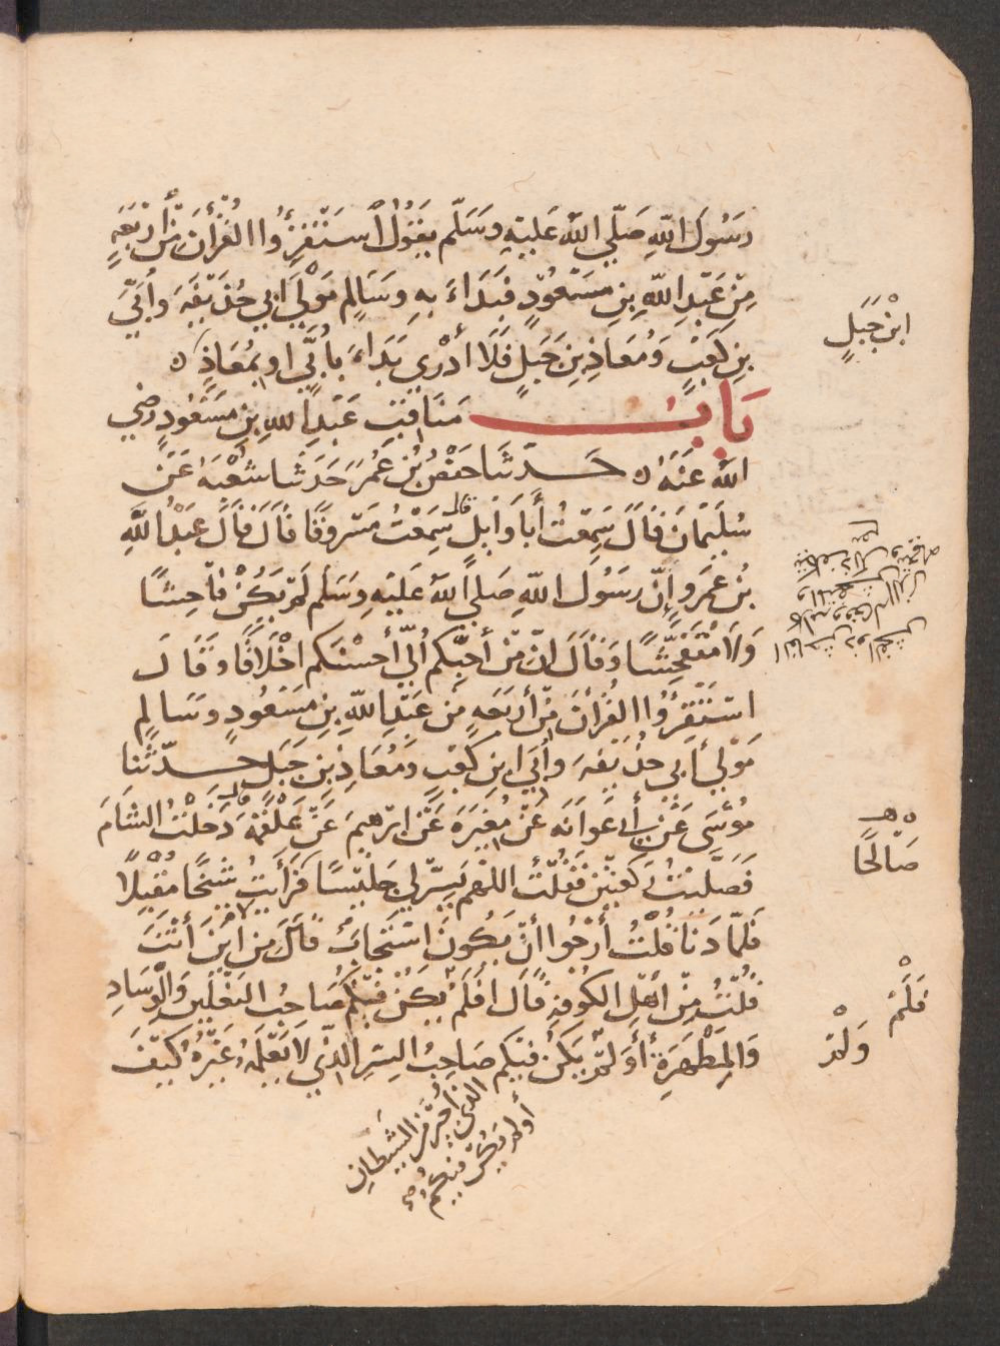 رَسُولَ اللّهِ صَلّي اللّه عَليْهِ وسَلّم يقولُ اسْتَقْرِؤُا القُرْأنَ مِنْ أرْبَعَةٍ
مِنْ عَبْدِ اللّهِ بنِ مسْعُودٍ فبَدَاءَ بهِ وسَالمٍ مَوْلي ابي حُذيْفَةَ وأُبَيّ
بنِ كعْبٍ ومُعَاذِ بنِ جَبلٍ قَالَ لا أدْري بَدَاءَ بأُبَيّ او بمُعَاذٍ ه
ابْنِ جَبَلٍ
بَابُ مَنَاقِبِ عَبْدِ اللهِ بنِ مسْعُودٍ رضي
اللّه عَنْهُ ه حَدّثنا حَفْصُ بنُ عُمَرَ حَدَثنا شُعْبَة عَنْ
سُليْمانَ قَالَ سَمِعْتُ أبَا وَايِلٍ قال سَمِعْتُ مَسْروقًا قالَ قَالَ عبْدُ اللّهِ
بْنُ عمْرو إنّ رسُولَ اللّهِ صَلي اللّه عَليْهِ وسَلّم لمْ يَكُنْ فاحِشًا
ولاَ مُتفَحِّشًا وَقَالَ انّ مِنْ أحَبِّكم اليّ أحْسَنَكم اخْلاقًا وقَالَ
اسْتَقْرِؤُا القُرْأنَ مِنْ أرْبَعَةٍ مِنْ عَبْدِ اللّهِ بنِ مَسْعُودٍ وسَالمٍ
مَوْلي أبي حُذيْفَةَ وأبَي ابنِ كَعْبٍ ومُعَاذِ بنِ جَبَلٍ حَدّثَنا
مُوسَى عَنْ أبي عَوَانَة عَنْ مُغِيرَةَ عَنْ ابرْهِيمَ عَنْ عَلْقَمَة قال دَخلْتُ الشامَ
فَصَلّيْتُ ركعَتيْن فقُلتُ اللّهمّ يَسِّرْ لي جَليسًا فرَأيتُ شيْخًا مُقبِلاً
صَالحًا
فَلمّا دَنَا قُلْتُ أرْجُوا أنْ يكُونَ اسْتجَابَ قَالَ مِن ايْنَ أنْتَ
قُلتُ مِنْ اهْلِ الكُوفةِ قَالَ افَلمْ يَكُنْ فيكُم صَاحِبُ النعْليْنِ وَالْوِسَادِ
فَلَمْ
والمِطْهَرَةِ أوَلمْ يَكنْ فيكم صَاحِبُ السِرِّ الذي لا يَعْلمُهُ غيْرُهُ كيْفَ
وَلمْ
أولم يَكُن فيكُم
الذي أجير من الشيطانِ